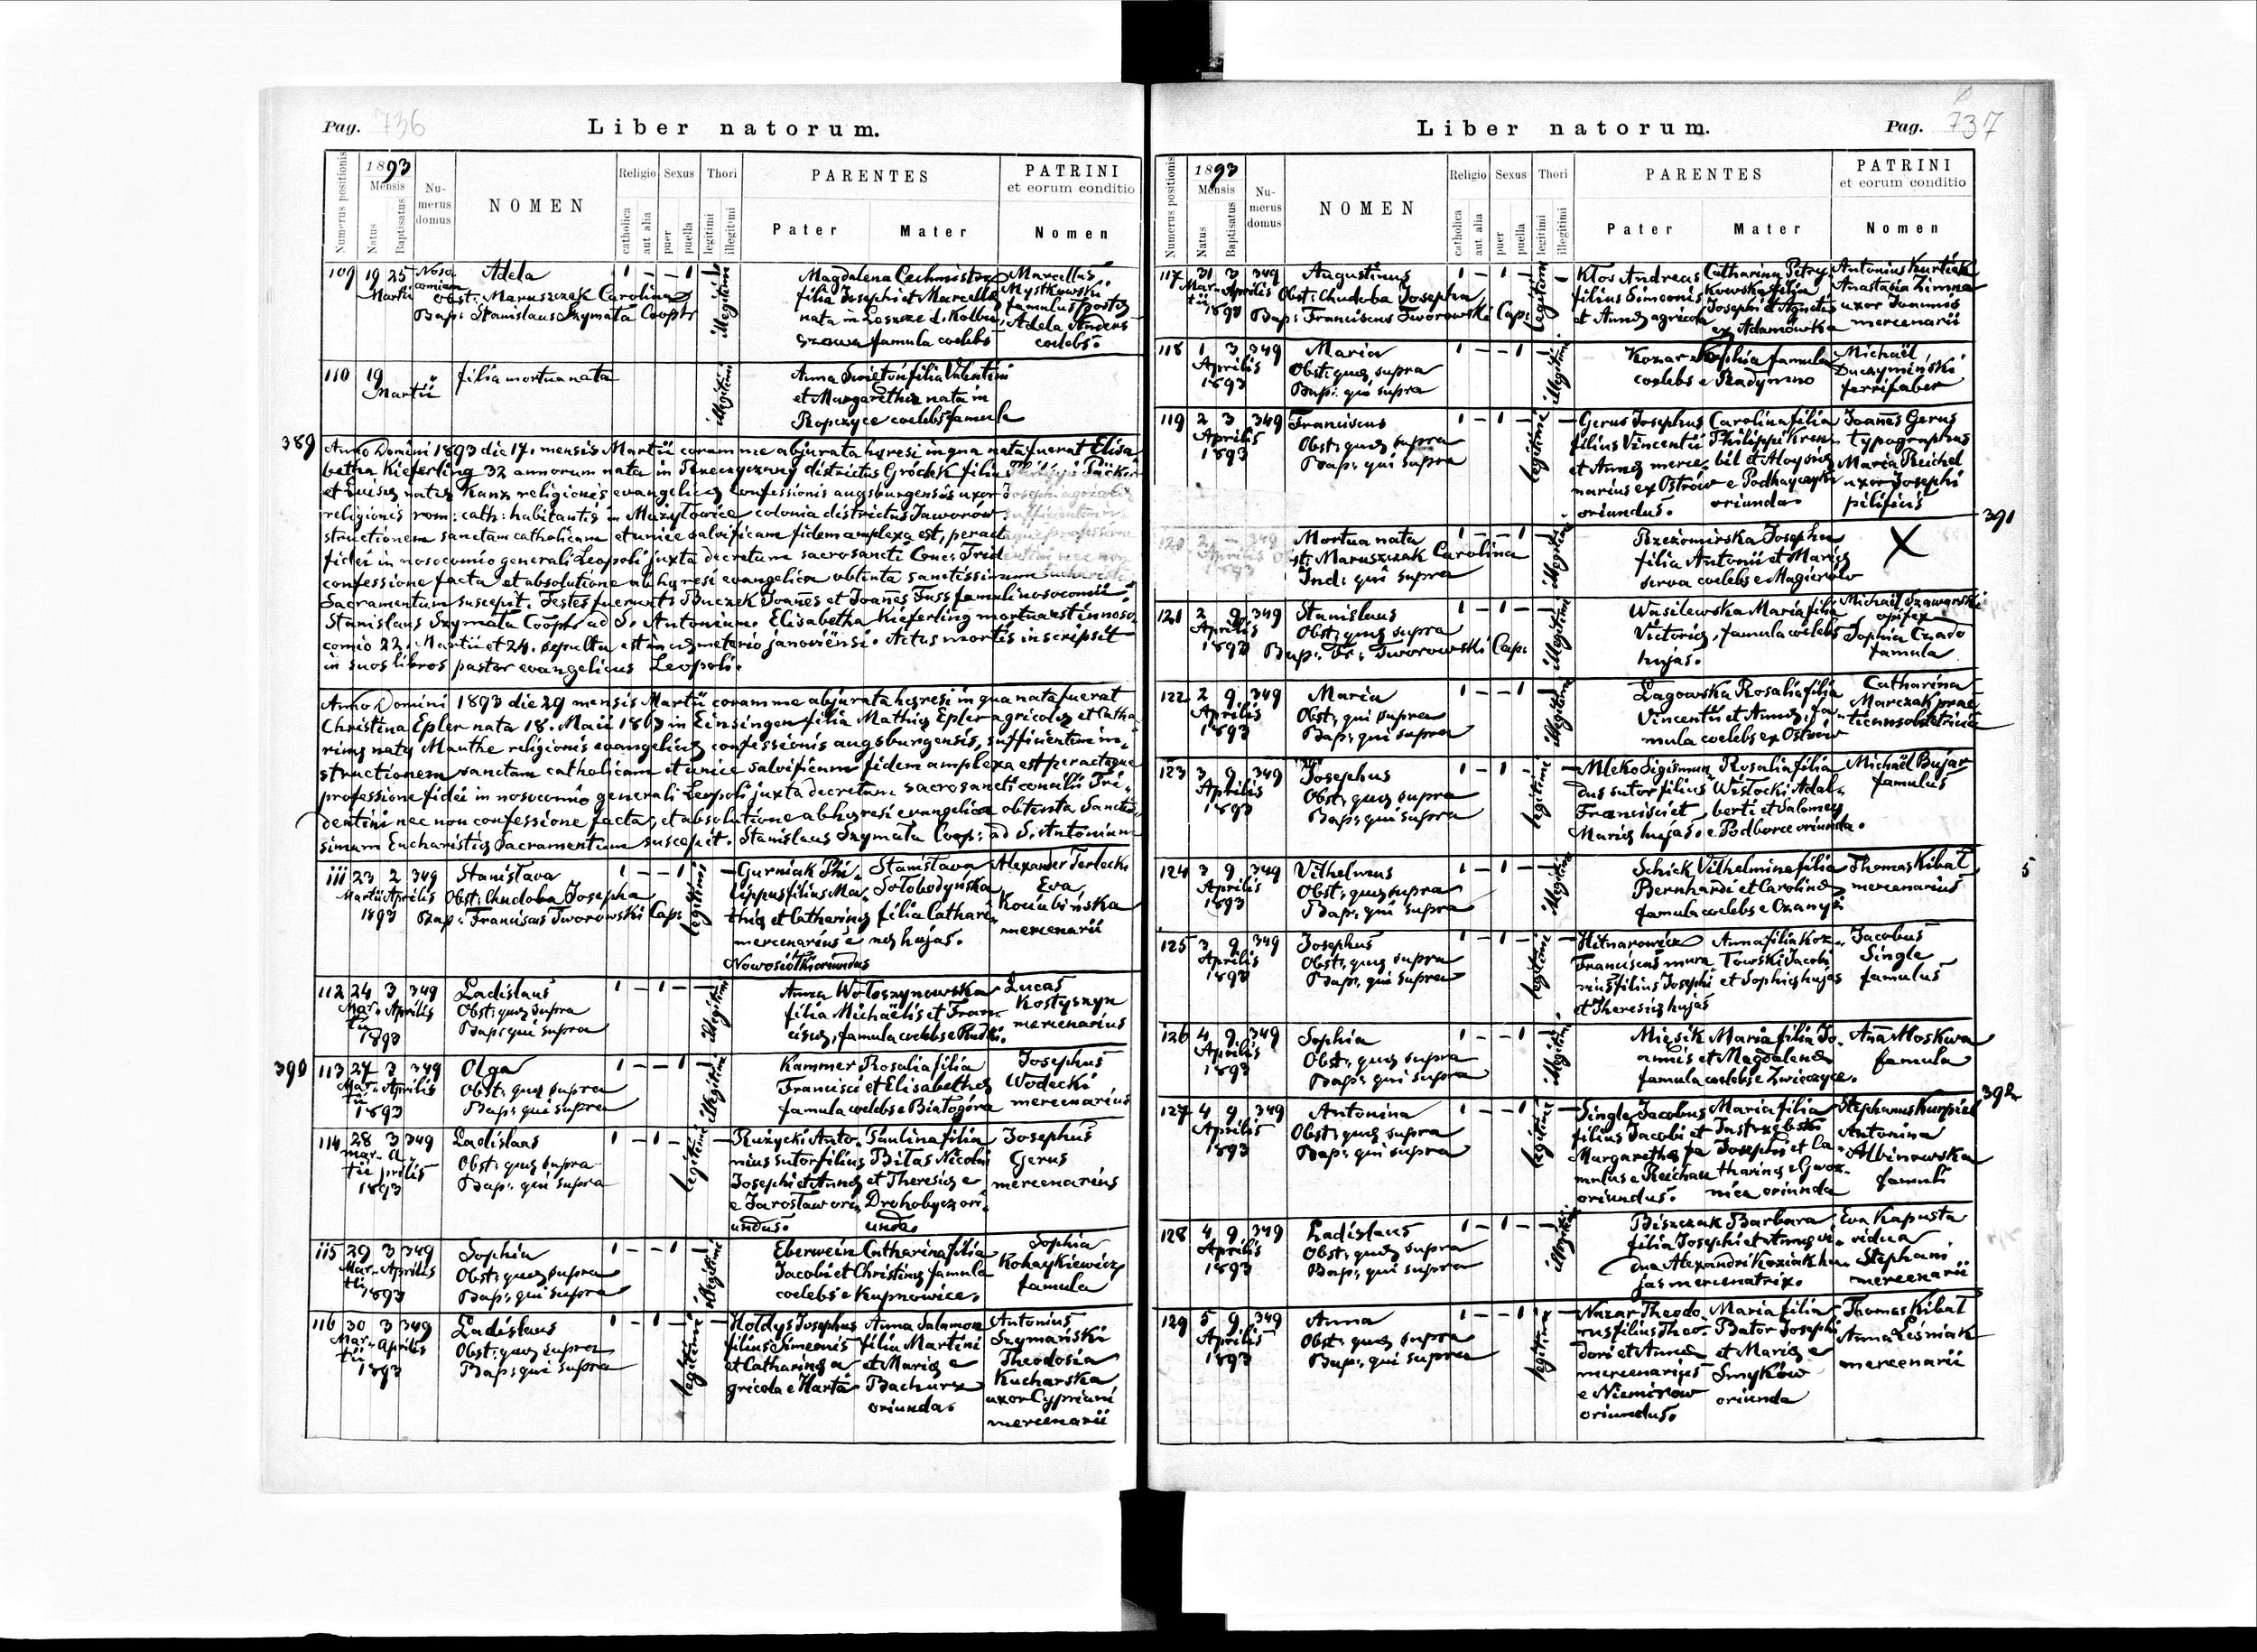 Pag. 736
Liber natorum.
Numerus positionis
1893
Mensis
Natus
Baptisatus
Nu-
merus
domus
NOMEN
Religio
catholica
aut alia
Sexus
puer
puella
Thori
legitimi
illegitimi
PARENTES
Pater
Mater
PATRINI
et eorum conditio
Nomen
109 19 25 Noso- Adela 1 – – 1
Martii comium
Obst: Maruszczak Carolina
Bap: Stanislaus Szymata Cooptr
illegitimi
Magdalena Cechmistrz
filia Josephi et Marcella
nata in Leszcze d. Kolbu-
szowa famula coelebs
Marcellus
Mystkowski
famulus
Adela Anders
coelebs.
110 19
Martii
filia mortua nata
illegitimi
Anna Swietoń filia Valentini
et Margaretha nata in
Ropczyce coelebs famula
389
Anno Domini 1893 die 17. mensis Martii coram me abjurata hęresi in qua nata fuerat Elisa
betha Kieferling 32 annorum nata in districtus Gródek filia Philippi
et Luisę natę Kanz religionis evangelicę confessionis augsburgensis uxor Josephi agricolę
religionis rom: cath: habitantis in Mużyłowice colonia districtus Jaworów sufficientem in
structionem sanctam catholicam et unice salvificam fidem amplexa est, peractaque professione
fidei in nosocomio generali Leopoli juxta decretum sacrosancti Conc: Tridentini nec non
confessione facta et absolutione ab hęresi evangelica obtenta sanctissimum Eucharistię
Sacramentum suscepit. Testes fuerunt: Buczek Joannes et Joannes Fuss famuli nosocomii.
Stanislaus Szymata Cooptr ad S. Antonium. Elisabetha Kieferling mortua est in noso
comio 22. Martii et 24. sepulta est in cęmeterio janoviensi. Actus mortis inscripsit
in suos libros pastor evangelicus Leopoli.
Anno Domini 1893 die 29 mensis Martii coram me abjurata hęresi in qua nata fuerat
Christina Epler nata 18. Maii 1863 in Einsingen filia Mathię Epler agricolę et Catha
rinę natę Manthe religionis evangelicę confessionis augsburgensis, sufficientem in-
structionem sanctam catholicam et unice salvificam fidem amplexa est peractaque
professione fidei in nosocomio generali Leopoli juxta decretum sacrosancti concilii Tri-
dentini nec non confessione facta, et absolutione ab hęresi evangelica obtenta Sanctis-
simum Eucharistię Sacramentum suscepit. Stanislaus Szymata Coop: ad S. Antonium
111 23 2 349 Stanisłava 1 – – 1 1 –
Martii Aprilis
1893
Obst: Chudoba Josepha
Bap: Franciscus Tworowski Cap:
legitimi
Gurniak Phi-
lippus filius Ma-
thię et Catharinę
mercenarius e
Nowosiółki oriundus
Stanisłava
Sołobodyńska
filia Cathari-
nę hujas.
Alexander Terlecki
Eva
Kociubińska
mercenarii
112 24 3 349 Ladislaus 1 – 1 – – 1
Mar- Aprilis
tii
1893
Obst: quę supra
Bap: qui supra
illegitimi
Anna Wołoszynowska
filia Michaëlis et Fran-
ciscę, famula coelebs e Rudki.
Lucas
Kostyszyn
mercenarius
390
113 27 3 349 Olga 1 – – 1 – 1
Mar- Aprilis
tii
1893
Obst: quę supra
Bap: qui supra
illegitimi
Kammer Rosalia filia
Francisci et Elisabethę
famula coelebs e Białogóra
Josephus
Wodecki
mercenarius
114 28 3 349 Ladislaus 1 – 1 – 1 –
Mar- A-
tii prilis
1893
Obst: quę supra
Bap: qui supra
legitimi
Rużycki Anto-
nius sutor filius
Josephi et Annę
e Jarosław ori-
undus.
Paulina filia
Bilas Nicolai
et Theresię e
Drohobycz ori-
unda.
Josephus
Gerus
mercenarius
115 29 3 349 Sophia 1 – – 1 – 1
Mar- Aprilis
tii
1893
Obst: quę supra
Bap: qui supra
illegitimi
Eberwein Catharina filia
Jacobi et Christinę famula
coelebs e Kupnowice.
Sophia
Rohaykiewicz
famula
116 30 3 349 Ladislaus 1 – 1 – 1 –
Mar- Aprilis
tii
1893
Obst: quę supra
Bap: qui supra
legitimi
Hołdys Josephus
filius Simeonis
et Catharinę a
gricola e Harta
Anna Salamon
filia Martini
et Marię e
Bachurz
oriunda.
Antonius
Szymański
Theodosia
Kucharska
uxor Cypriani
mercenarii
Liber natorum.
Pag. 737
Numerus positionis
1893
Mensis
Natus
Baptisatus
Nu-
merus
domus
NOMEN
Religio
catholica
aut alia
Sexus
puer
puella
Thori
legitimi
illegitimi
PARENTES
Pater
Mater
PATRINI
et eorum conditio
Nomen
117 31 3 349 Augustinus 1 – 1 – 1 –
Mar- Aprilis
tii
1893
Obst: Chudoba Josepha
Bap: Franciscus Tworowski Cap:
legitimi
Kłos Andreas
filius Simeonis
et Annę agricola
Catharina Petry
kowska filia
Josephi et Agnetis
ex Adamówka
Antonius Kurtiak
Anastasia Zimna
uxor Joannis
mercenarii
118 1 3 349 Maria 1 – – 1 – 1
Aprilis
1893
Obst: quę supra
Bap: qui supra
illegitimi
Sophia famula
coelebs e Radymno
Michaël
Duczymiński
ferrifaber
119 2 3 349 Franciscus 1 – 1 – 1 –
Aprilis
1893
Obst: quę supra
Bap: qui supra
legitimi
Gerus Josephus
filius Vincentii
et Annę merce-
narius ex Ostrów
oriundus.
Carolina filia
Philippi Kren-
bil et Aloysię
e Podhayczyki
oriunda.
Joannes Gerus
typographus
Maria Reichel
uxor Josephi
pilificis
391
120 2 – 349 Mortua nata 1 – – 1 – 1
Aprilis
1893
Obst: Maruszczak Carolina
Ind: qui supra
illegitimi
Rzeziomirska Josepha
filia Antonii et Marię
serva coelebs e Magierów
X
121 2 9 349 Stanislaus 1 – 1 – – 1
Aprilis
1893
Obst: quę supra
Bap: Fr: Tworowski Cap:
illegitimi
Wasilewska Maria filia
Victorię, famula coelebs
hujas.
Michaël Szawarski
opifex
Sophia Czado
famula
122 2 9 349 Maria 1 – – 1 – 1
Aprilis
1893
Obst: qui supra
Bap: qui supra
illegitimi
Łagowska Rosalia filia
Vincentii et Annę, fa-
mula coelebs ex Ostrów
Catharina
Marczak prac
ticans obstetricię
123 3 9 349 Josephus 1 – 1 – 1 –
Aprilis
1893
Obst: quę supra
Bap: qui supra
legitimi
Mleko Sigismun
dus sutor filius
Francisci et
Marię hujas.
Rosalia filia
Wisłocki Adal-
berti et Salomeę
e Podborce oriunda.
Michaël Bujar
famulus
124 3 9 349 Vilhelmus 1 – 1 – – 1
Aprilis
1893
Obst: quę supra
Bap: qui supra
illegitimi
Schick Vilhelmina filia
Bernhardi et Carolinę
famula coelebs e Ozanyż
Thomas Kibał
mercenarius
5
125 3 9 349 Josephus 1 – 1 – 1 –
Aprilis
1893
Obst: quę supra
Bap: qui supra
legitimi
Hitnarowicz
Franciscus mura
rius filius Josephi
et Theresię hujas
Anna filia Koz-
łowski Jacobi
et Sophię hujas
Jacobus
Single
famulus
126 4 9 349 Sophia 1 – – 1 – 1
Aprilis
1893
Obst: quę supra
Bap: qui supra
illegitimi
Mięsik Maria filia Jo-
annis et Magdalenę
famula coelebs e Zwięczyce.
Anna Moskwa
famula
392
127 4 9 349 Antonina 1 – – 1 1 –
Aprilis
1893
Obst: quę supra
Bap: qui supra
legitimi
Single Jacobus
filius Jacobi et
Margarethę fa
mulus e Reichau
oriundus.
Maria filia
Jastrzębski
Josephi et Ca-
tharinę e Gwoz-
nica oriunda
Stephanus Kurpiel
Antonina
Albinowska
famuli
128 4 9 349 Ladislaus 1 – 1 – – 1
Aprilis
1893
Obst: quę supra
Bap: qui supra
illegitimi
Biszczak Barbara
filia Josephi et Annę vi-
dua Alexandri Koziak hu-
jas mercenatrix.
Eva Kapusta
vidua
Stephani
mercenarii
129 5 9 349 Anna 1 – – 1 1 –
Aprilis
1893
Obst: quę supra
Bap: qui supra
legitimi
Nazar Theodo
rus filius Theo-
dori et Annę
mercenarius
e Niemirow
oriundus.
Maria filia
Bator Josephi
et Marię e
Smyków
oriunda
Thomas Kibał
Anna Leśniak
mercenarii